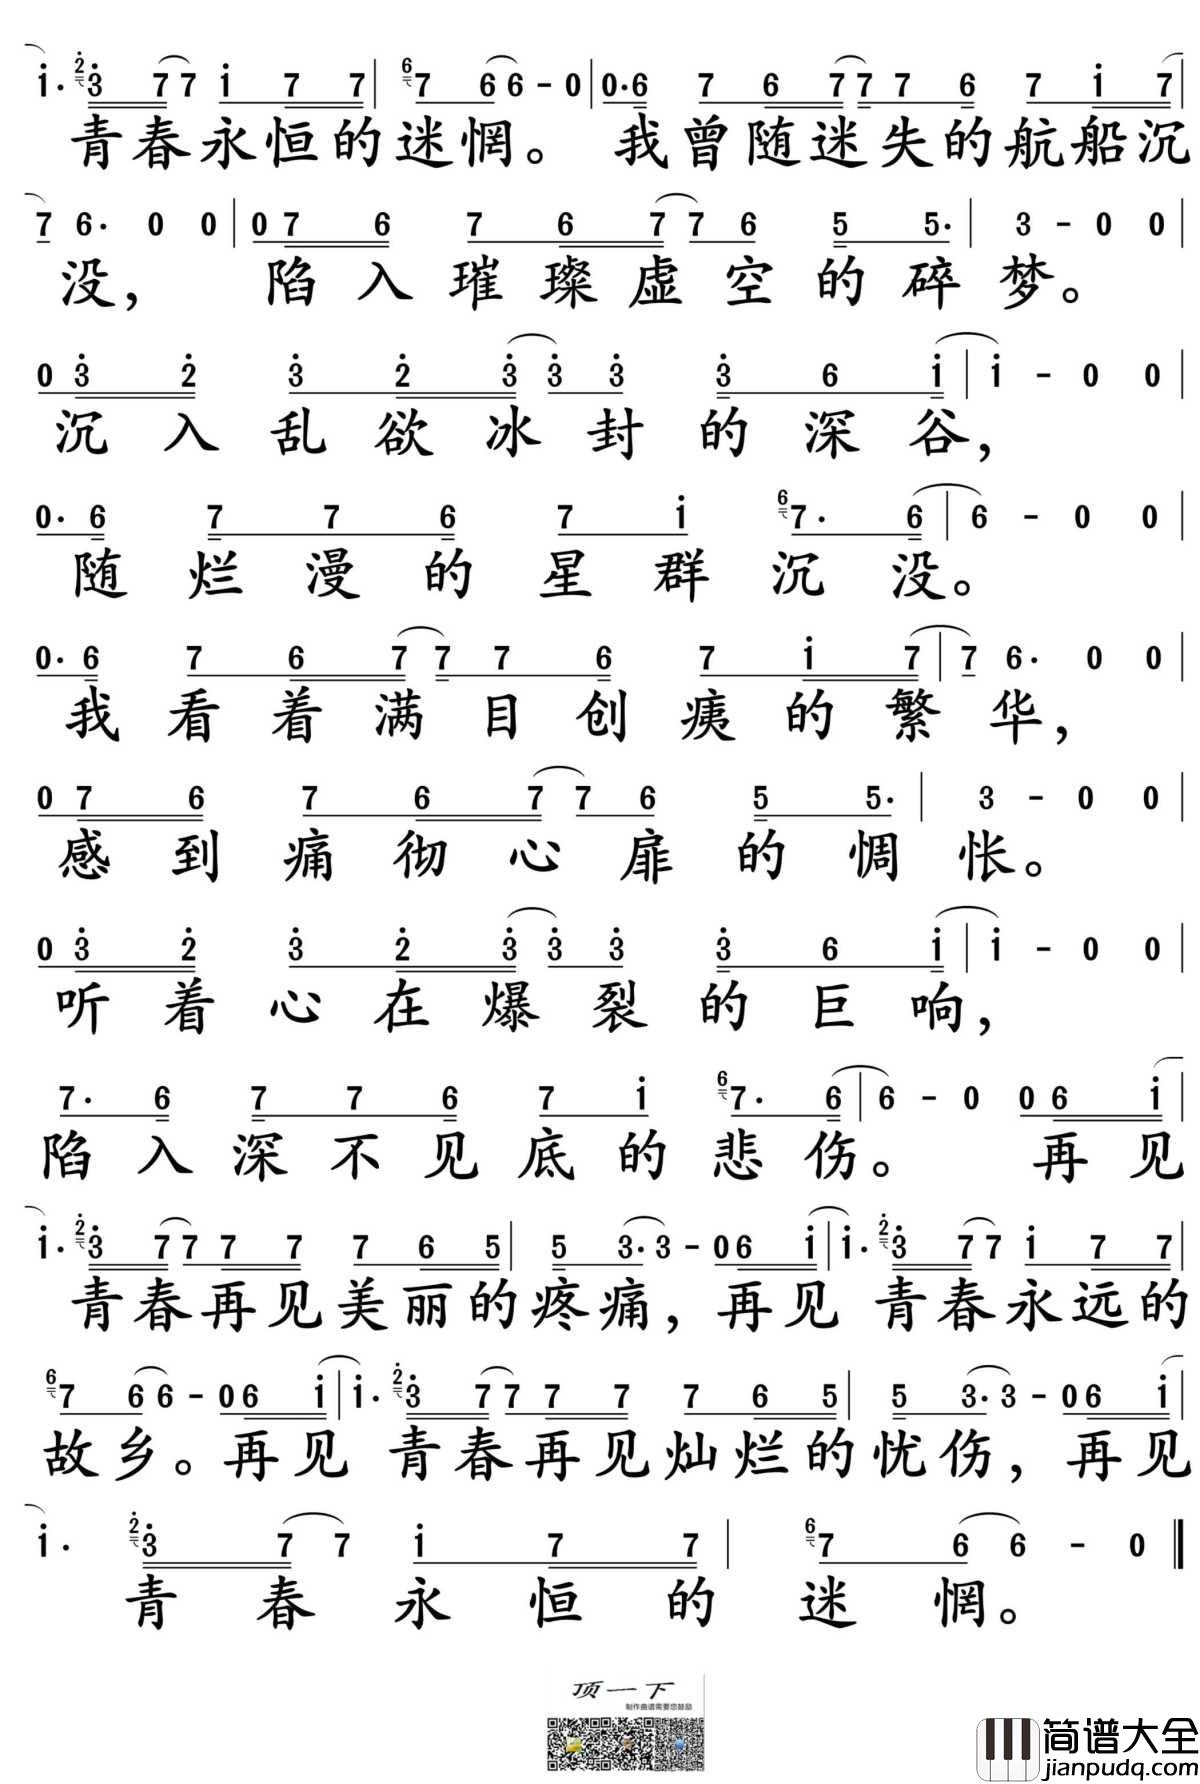 i· 2 3 7 7 i 7 7 | 6 7 6 6 - 0 | 0·6 7 6 7 7 7 6 7 i 7 |
青春永恒的迷惘。我曾随迷失的航船沉
7 6· 0 0 | 0 7 6 7 6 7 7 6 5 5· | 3 - 0 0 |
没，陷入璀璨虚空的碎梦。
0 3 2 3 2 3 3 3 3 6 i | i - 0 0 |
沉入乱欲冰封的深谷，
0· 6 7 7 6 7 i 6 7· 6 | 6 - 0 0 |
随烂漫的星群沉没。
0· 6 7 6 7 7 7 6 7 i 7 | 7 6· 0 0 |
我看着满目创痍的繁华，
0 7 6 7 6 7 7 6 5 5· | 3 - 0 0 |
感到痛彻心扉的惆怅。
0 3 2 3 2 3 3 3 3 6 i | i - 0 0 |
听着心在爆裂的巨响，
7· 6 7 7 6 7 i 6 7· 6 | 6 - 0 0 6 i |
陷入深不见底的悲伤。再见
i· 2 3 7 7 7 7 7 6 5 | 5 3·3 - 0 6 i | i· 2 3 7 7 i 7 7 |
青春再见美丽的疼痛，再见青春永远的
6 7 6 6 - 0 6 i | i· 2 3 7 7 7 7 7 6 5 | 5 3·3 - 0 6 i |
故乡。再见青春再见灿烂的忧伤，再见
i· 2 3 7 7 i 7 7 | 6 7 6 6 - 0
青春永恒的迷惘。
顶一下
制作曲谱需要您鼓励
简谱大全
jianpudq.com